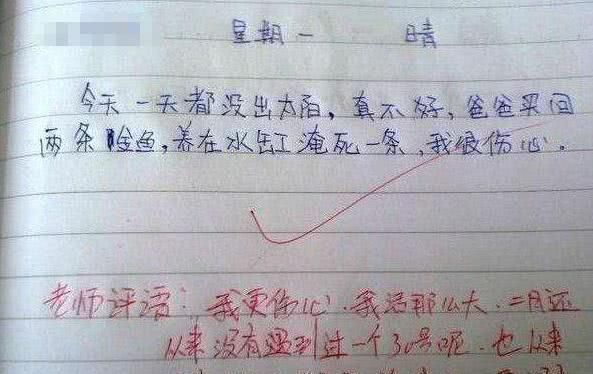 星期一 晴
今天一天都没出太阳，真不好，爸爸买回
两条金鱼，养在水缸淹死一条，我很伤心。
老师评语：我更伤心．我活那么大．二月还
从来没有遇到过一个30号呢．也从来